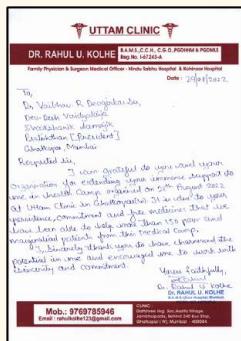 UTTAM CLINIC
DR. RAHUL U. KOLHE
B.A.M.S., C.C.H., C.G.O., PGDHHM & PGDMLS
Reg. No. I-67243-A
Family Physician & Surgeon Medical Officer - Hindu Sabha Hospital & Kohinoor Hospital
Date : 29/08/2022
To,
Dr. Vaibhav R Deogirkar Sir,
Dev Desh
[President]
Ghatkopar, Mumbai
Respected Sir,
I am grateful to you and your
organisation for extending your immense support to
me in Health Camp organised on August 2022
at Uttam Clinic in Ghatkopar(w). It is due to your
persistence, commitment and free medicines that we
have been able to help more than 150 poor and
marginalised patients from this medical camp.
I sincerely thank you to have channelised the
potential in me and encouraged me to work with
sincerity and commitment.
Yours faithfully,
Dr. Rahul U Kolhe
Dr. RAHUL U. KOLHE
Mob.: 9769785946
Email : rahulkolhe123@gmail.com
CLINIC